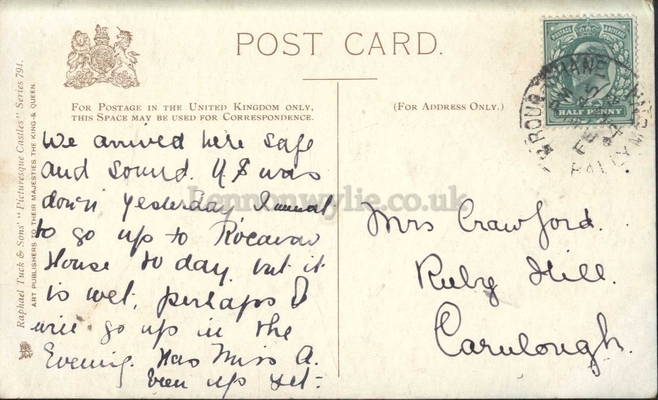 POST CARD.
FOR POSTAGE IN THE UNITED KINGDOM ONLY,
THIS SPACE MAY BE USED FOR CORRESPONDENCE.
(FOR ADDRESS ONLY.)
POSTAGE & REVENUE
HALF PENNY
Raphael Tuck & Sons' "Picturesque Castles" Series 794.
ART PUBLISHERS TO THEIR MAJESTIES THE KING & QUEEN.
We arrived here safe
and sound. was
down yesterday
to go up to
House to day but it
is wet, perhaps I
will go up in the
Evening. Has Miss A.
been up yet-
Mrs Crawford.
Ruby Hill.
Carulough.
Lennonwylie.co.uk